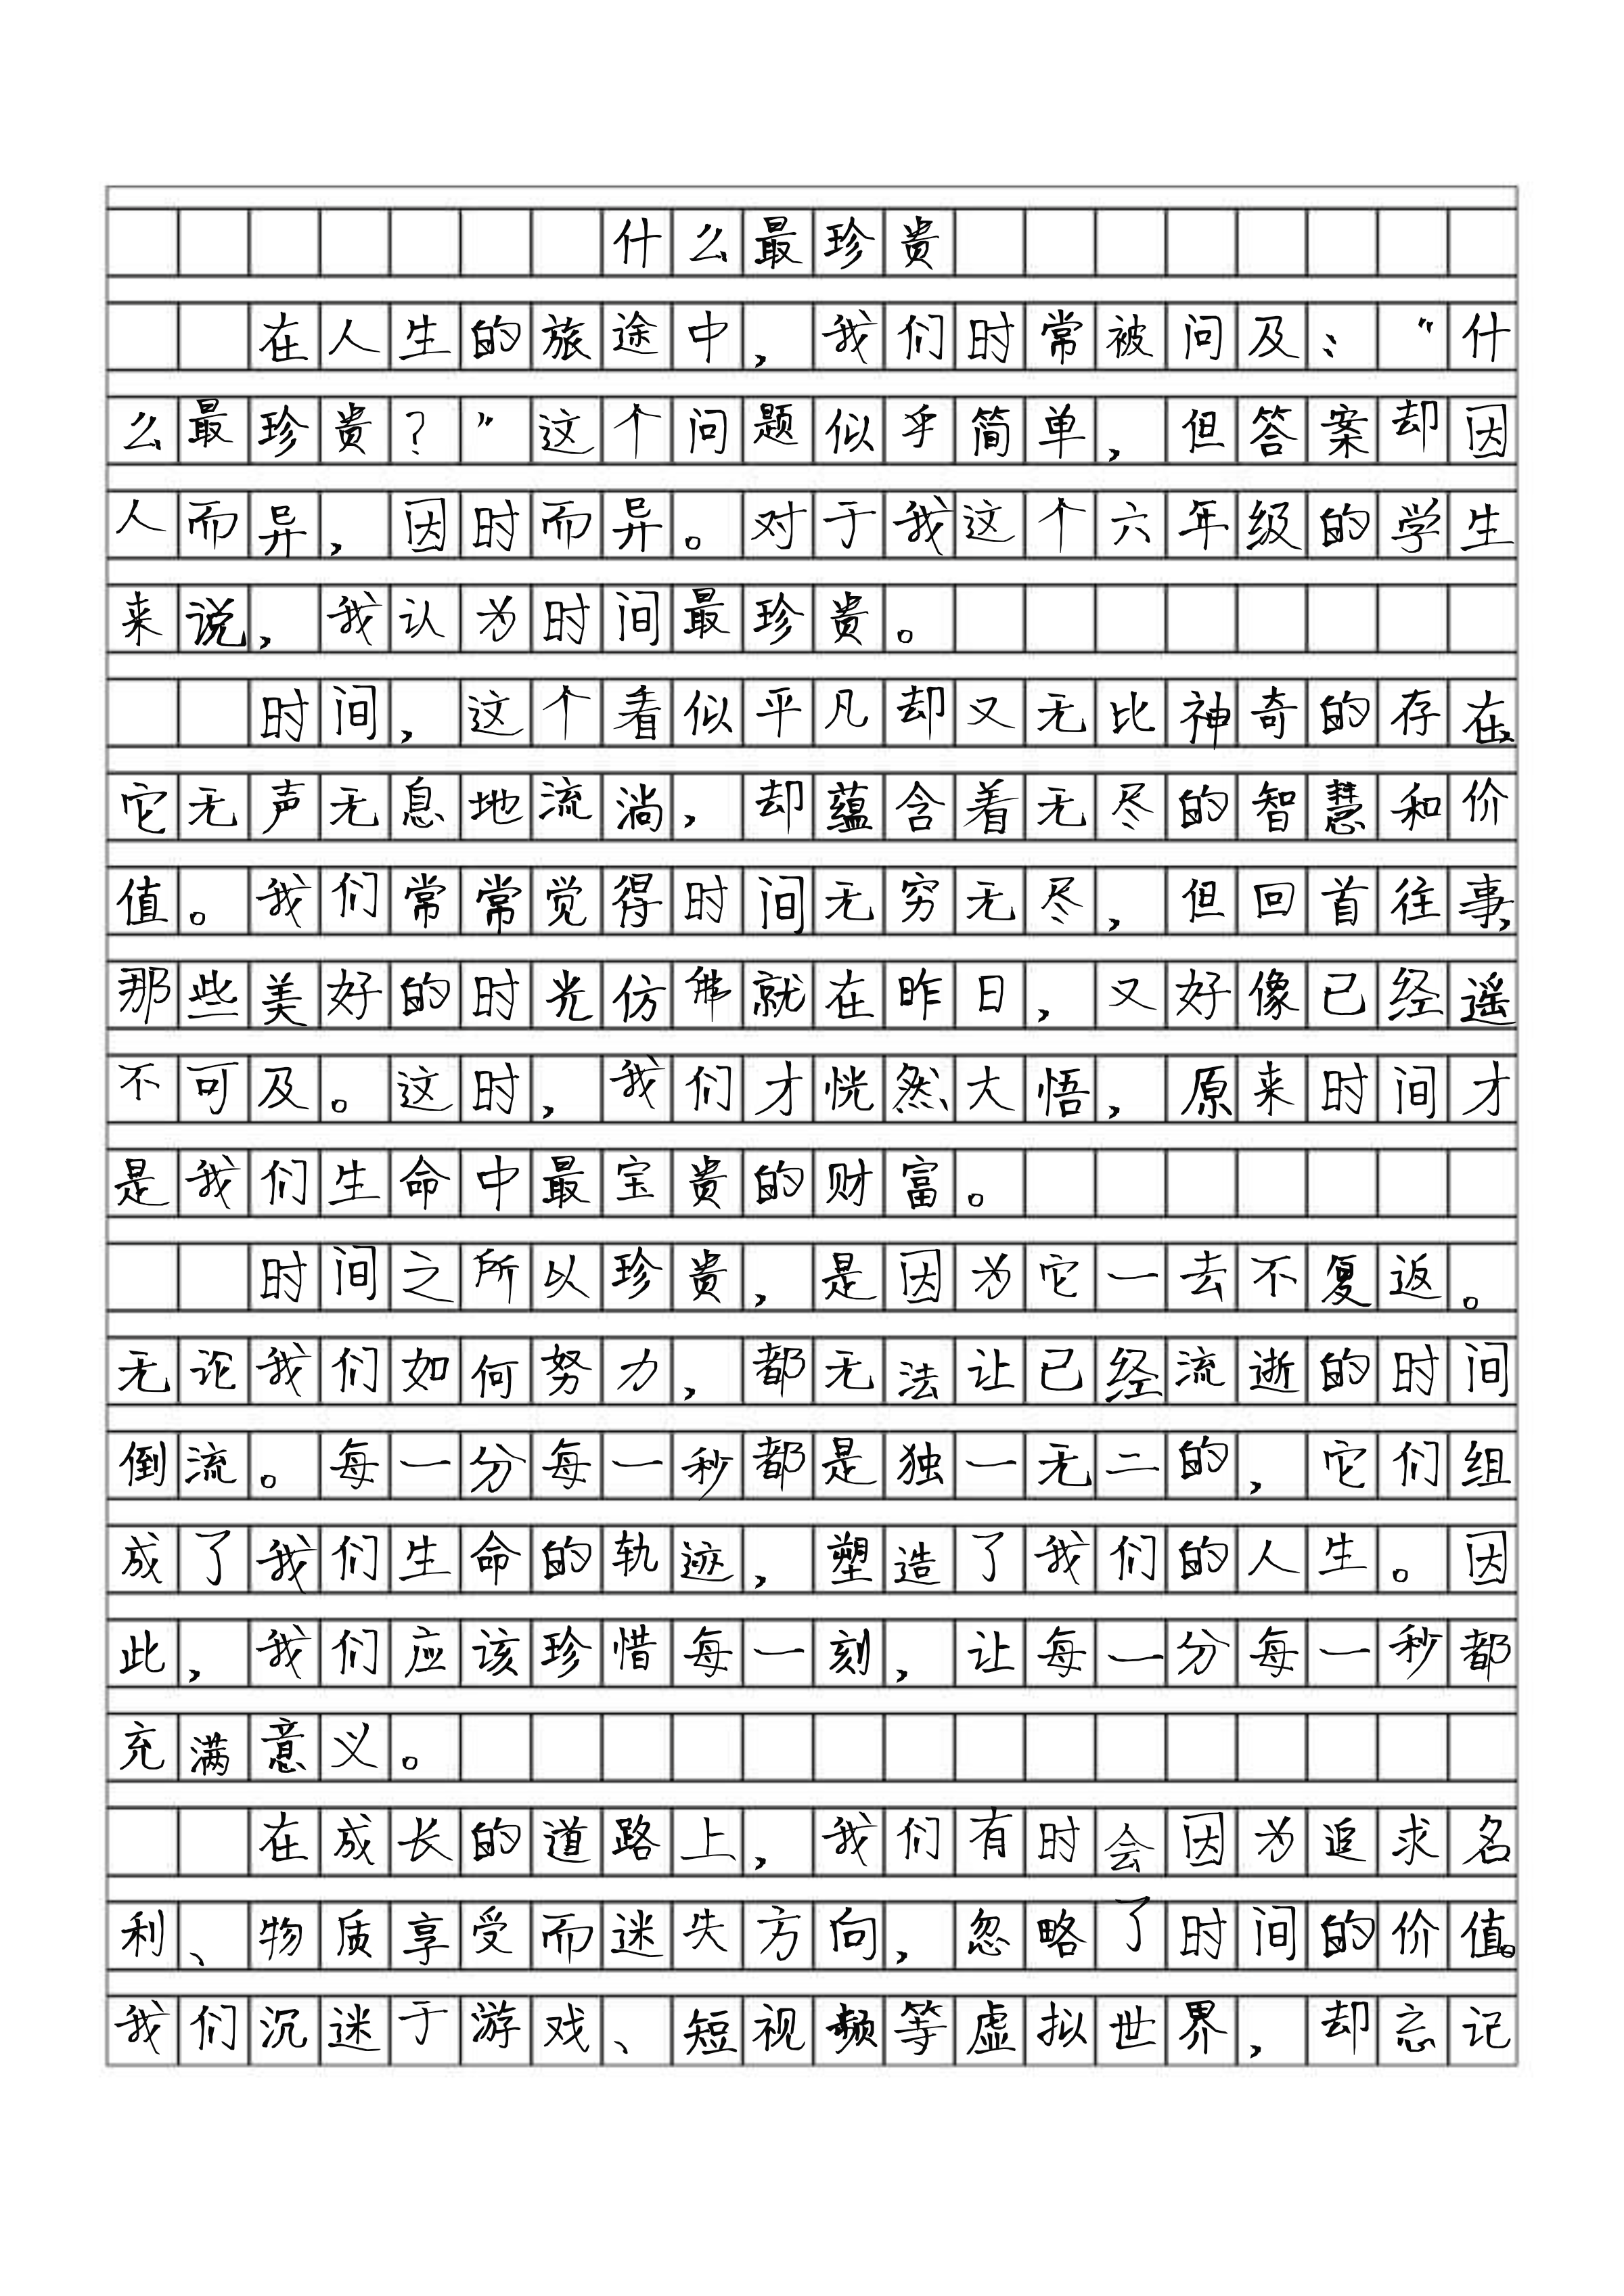 什么最珍贵
在人生的旅途中，我们时常被问及：“什
么最珍贵？”这个问题似乎简单，但答案却因
人而异，因时而异。对于我这个六年级的学生
来说，我认为时间最珍贵。
时间，这个看似平凡却又无比神奇的存在，
它无声无息地流淌，却蕴含着无尽的智慧和价
值。我们常常觉得时间无穷无尽，但回首往事，
那些美好的时光仿佛就在昨日，又好像已经遥
不可及。这时，我们才恍然大悟，原来时间才
是我们生命中最宝贵的财富。
时间之所以珍贵，是因为它一去不复返。
无论我们如何努力，都无法让已经流逝的时间
倒流。每一分每一秒都是独一无二的，它们组
成了我们生命的轨迹，塑造了我们的人生。因
此，我们应该珍惜每一刻，让每一分每一秒都
充满意义。
在成长的道路上，我们有时会因为追求名
利、物质享受而迷失方向，忽略了时间的价值。
我们沉迷于游戏、短视频等虚拟世界，却忘记